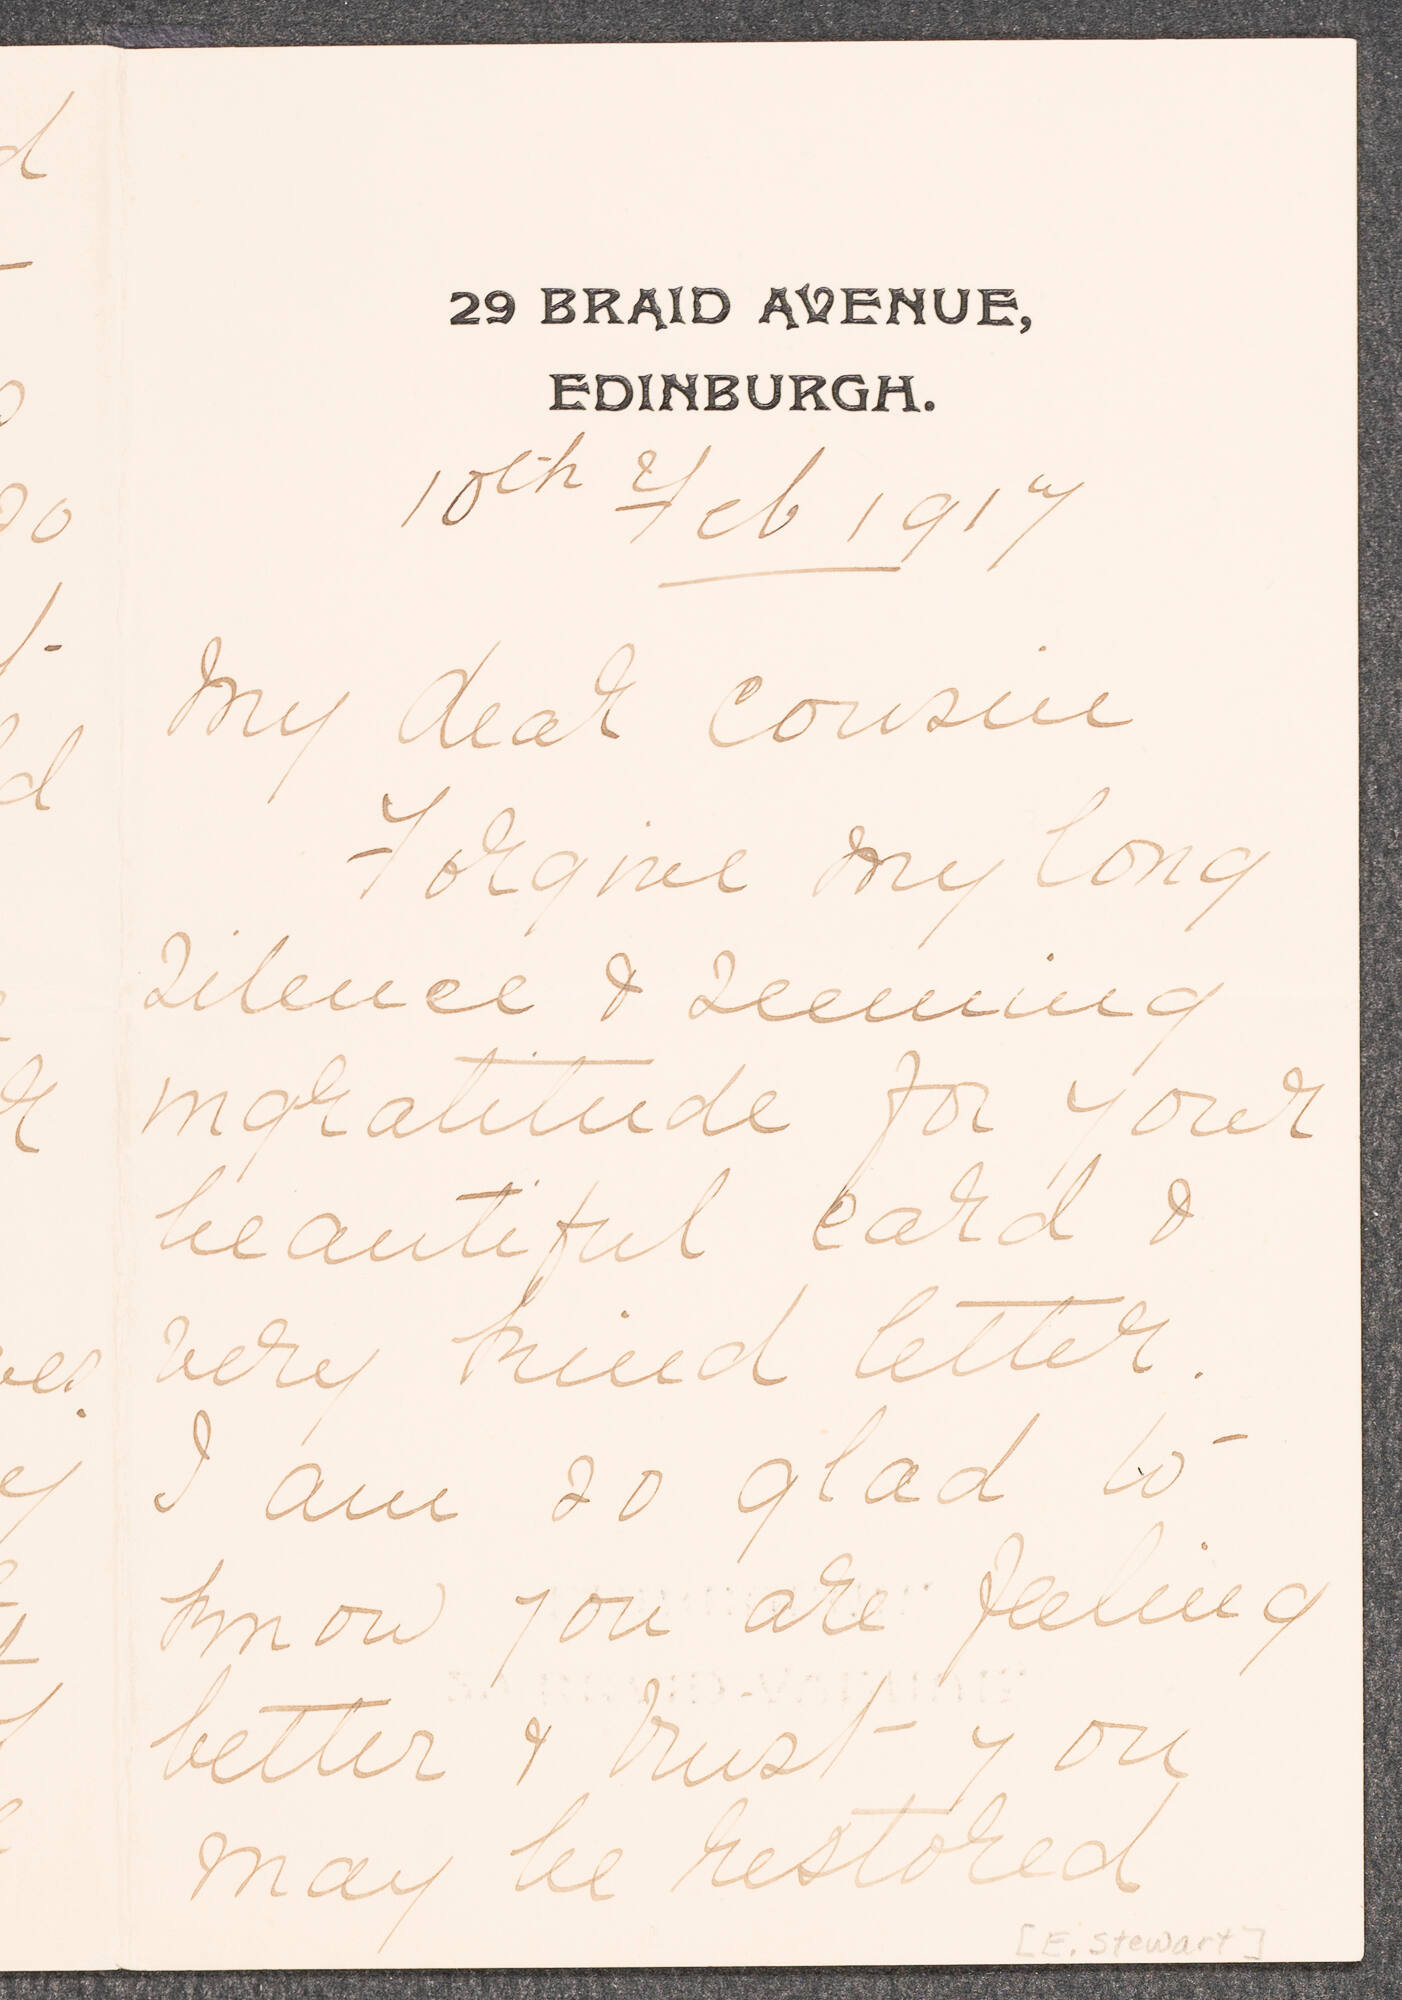 29 BRAID AVENUE,
EDINBURGH.
10th Feb 1917
My dear cousin
Forgive my long
silence & seeming
ingratitude for your
beautiful card &
very kind letter.
I am so glad to
know you are feeling
better & trust you
may be restored
[E. Stewart]